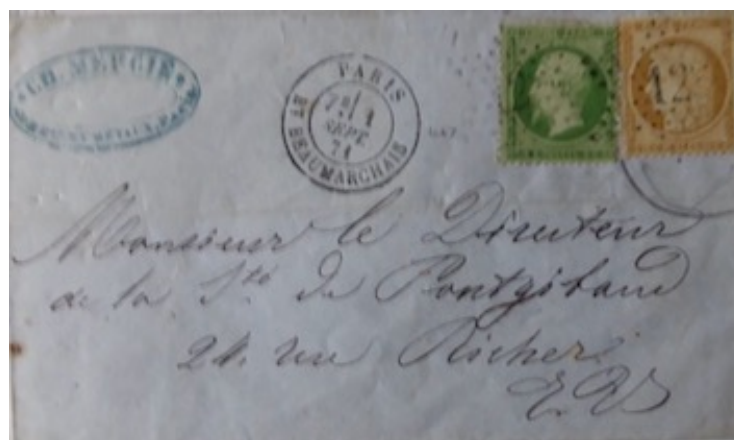 CH. MERCIE
PARIS
7E/ 1
SEPT.
71
BT BEAUMARCHAIS
12
Monsieur le Directeur
de la Sté de Pontgibaud
24 rue Richer
E. V.